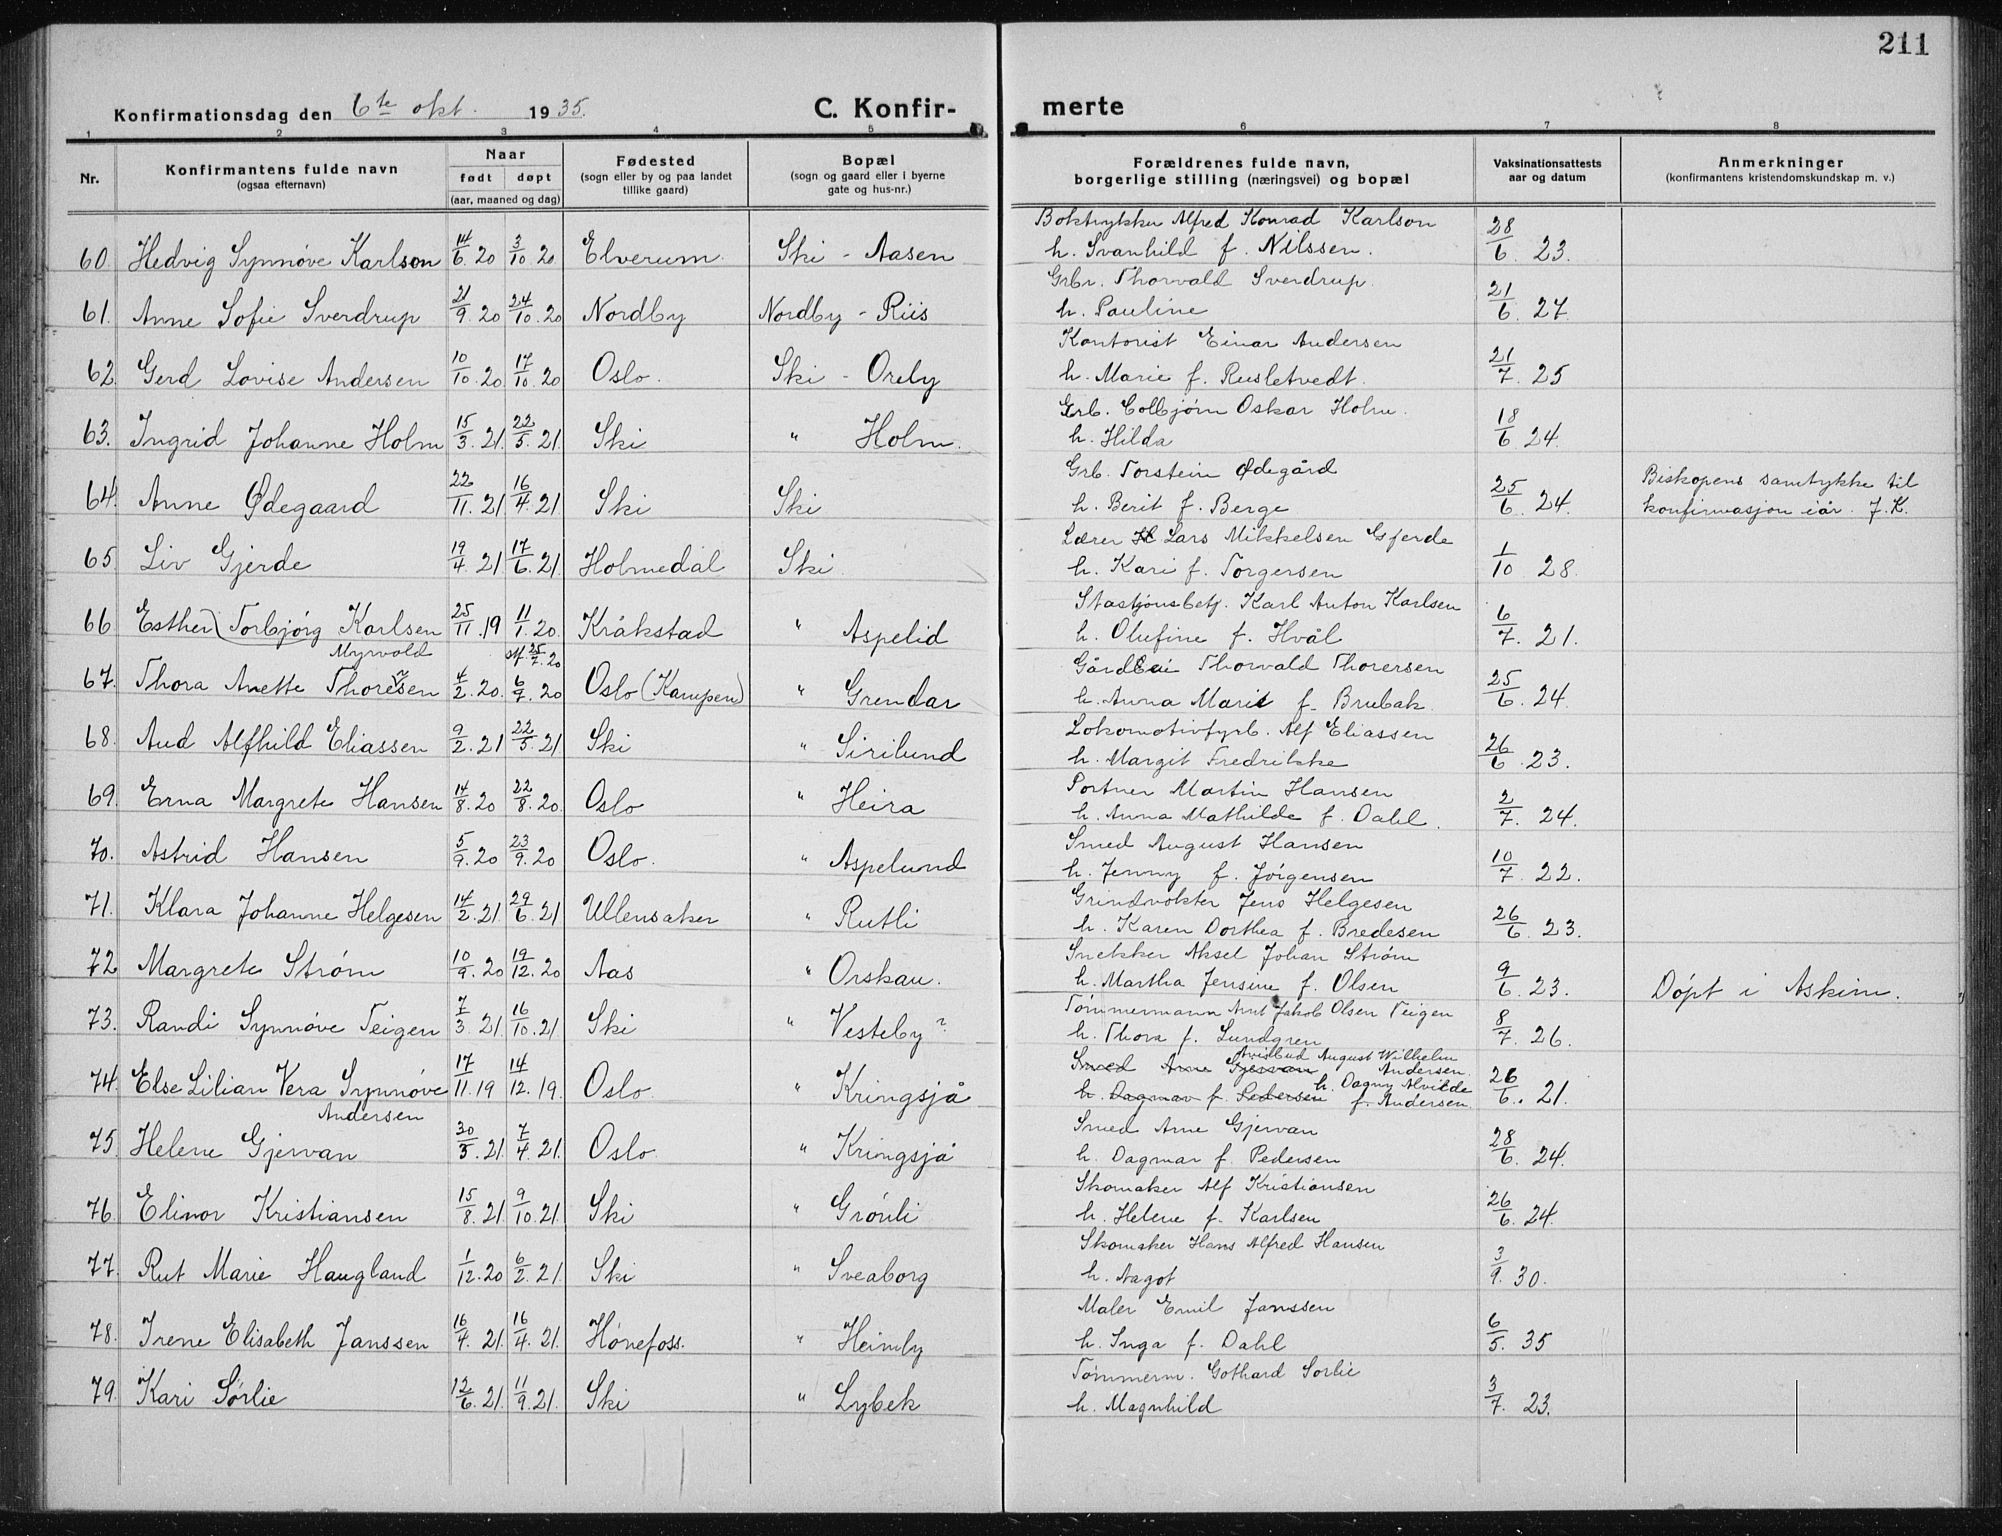 211
Konfirmationsdag den 6te okt. 1935. C. Konfir- merte
1 2 3 4 5 6 7 8
Nr. Konfirmantens fulde navn (ogsaa efternavn) Naar født døpt (aar, maaned og dag) Fødested (sogn eller by og paa landet tillike gaard) Bopæl (sogn og gaard eller i byerne gate og hus-nr.) Forældrenes fulde navn, borgerlige stilling (næringsvei) og bopæl Vaksinationsattests aar og datum Anmerkninger (konfirmantens kristendomskundskap m. v.)
Boktrykker Alfred Konrad Karlson
60. Hedvig Synnøve Karlson 14/6. 20 3/10. 20 Elverum. Ski - Aasen h. Svanhild f. Nilssen. 28/6. 23.
Grbr. Thorvald Sverdrup.
61. Anne Sofie Sverdrup 21/9. 20 24/10. 20 Nordby Nordby - Riis h. Pauline 21/6. 27.
Kontorist Einar Andersen
62 Gerd Lovise Andersen 10/10. 20 17/10. 20 Oslo. Ski - Oreby h. Marie f. Rusletvedt. 21/7. 25
Grb. Colbjørn Oskar Holm.
63. Ingrid Johanne Holm 15/3. 21 22/5. 21 Ski " Holm. h. Hilda 18/6 24.
Grb. Torstein Ødegård
64. Anne Ødegaard 22/11. 21 16/4. 21 Ski Ski h. Berit f. Berge 25/6 24. Biskopens samtykke til konfirmasjon iår. J.K.
Lærer Lars Mikkelsen Gjerde
65. Liv Gjerde 19/4. 21 17/6. 21 Holmedal Ski h. Kari f. Torgersen 1/10 28.
Stasjonsbetj. Karl Anton Karlsen
66 Esther (Torbjørg Karlsen 25/11. 19 11/1. 20. Kråkstad " Aspelid h. Olufine f. Hvål 6/7. 21.
Myrvold stf. 25/7. 20
Thorvald Thorersen
67. Thora Anette Thoresen 4/2. 20. 6/9. 20 Oslo (Kampen) " Grendar h. Anna Marie f. Brubak. 25/6. 24.
Lokomotivfyrb. Alf Eliassen
68. Aud Alfhild Eliassen 9/2. 21 22/5. 21 Ski " Sirilund h. Margit Fredrikke 26/6. 23.
Portner Martin Hansen
69. Erna Margrete Hansen 14/8. 20 22/8. 20. Oslo " Heira h. Anna Mathilde f. Dahl. 2/7. 24.
Smed August Hansen
70. Astrid Hansen 5/9. 20 23/9. 20 Oslo. " Aspelund h. Jenny f. Jørgensen 10/7. 22.
Grindvokter Jens Helgesen
71. Klara Johanne Helgesen 14/2. 21. 29/6. 21 Ullensaker " Rutli h. Karen Dorthea f. Bredesen 26/6. 23.
Snekker Aksel Johan Strøm
72 Margrete Strøm 10/9. 20 19/12. 20 Aas " Orskau. h. Martha Jensine f. Olsen 9/6. 23. Døpt i Askim.
Tømmermann Arnt Jakob Olsen Teigen
73. Randi Synnøve Teigen 7/3. 21. 16/10. 21 Ski " Vesteby? h. Thora f. Lundgren 8/7. 26.
Smed Arne Gjervan Avisbud August Wilhelm Andersen.
74. Else Lilian Vera Synnøve Andersen 17/11. 19 14/12. 19. Oslo. " Kringsjå h. Dagmar f. Pedersen h. Dagny Alvilde f. Andersen. 26/6. 21.
Smed Arne Gjervan
75. Helene Gjervan 30/3. 21. 7/4. 21. Oslo. " Kringsjå h. Dagmar f. Pedersen 28/6. 24.
Skomaker Alf Kristiansen
76. Elinor Kristiansen 15/8. 21. 9/10. 21. Ski " Grønli h. Helene f. Karlsen 26/6. 24.
Skomaker Hans Alfred Hansen
77. Rut Marie Haugland 1/12. 20 6/2. 21. Ski " Sveaborg h. Aagot 3/9. 30.
Maler Emil Janssen
78. Irene Elisabeth Janssen 16/4. 21. 16/4. 21. Hønefoss. " Heimly h. Inga f. Dahl 6/5. 35
Tømmerm. Gothard Sørlie
79. Kari Sørlie 12/6. 21. 11/9. 21. Ski " Lybek h. Magnhild 3/7. 23.